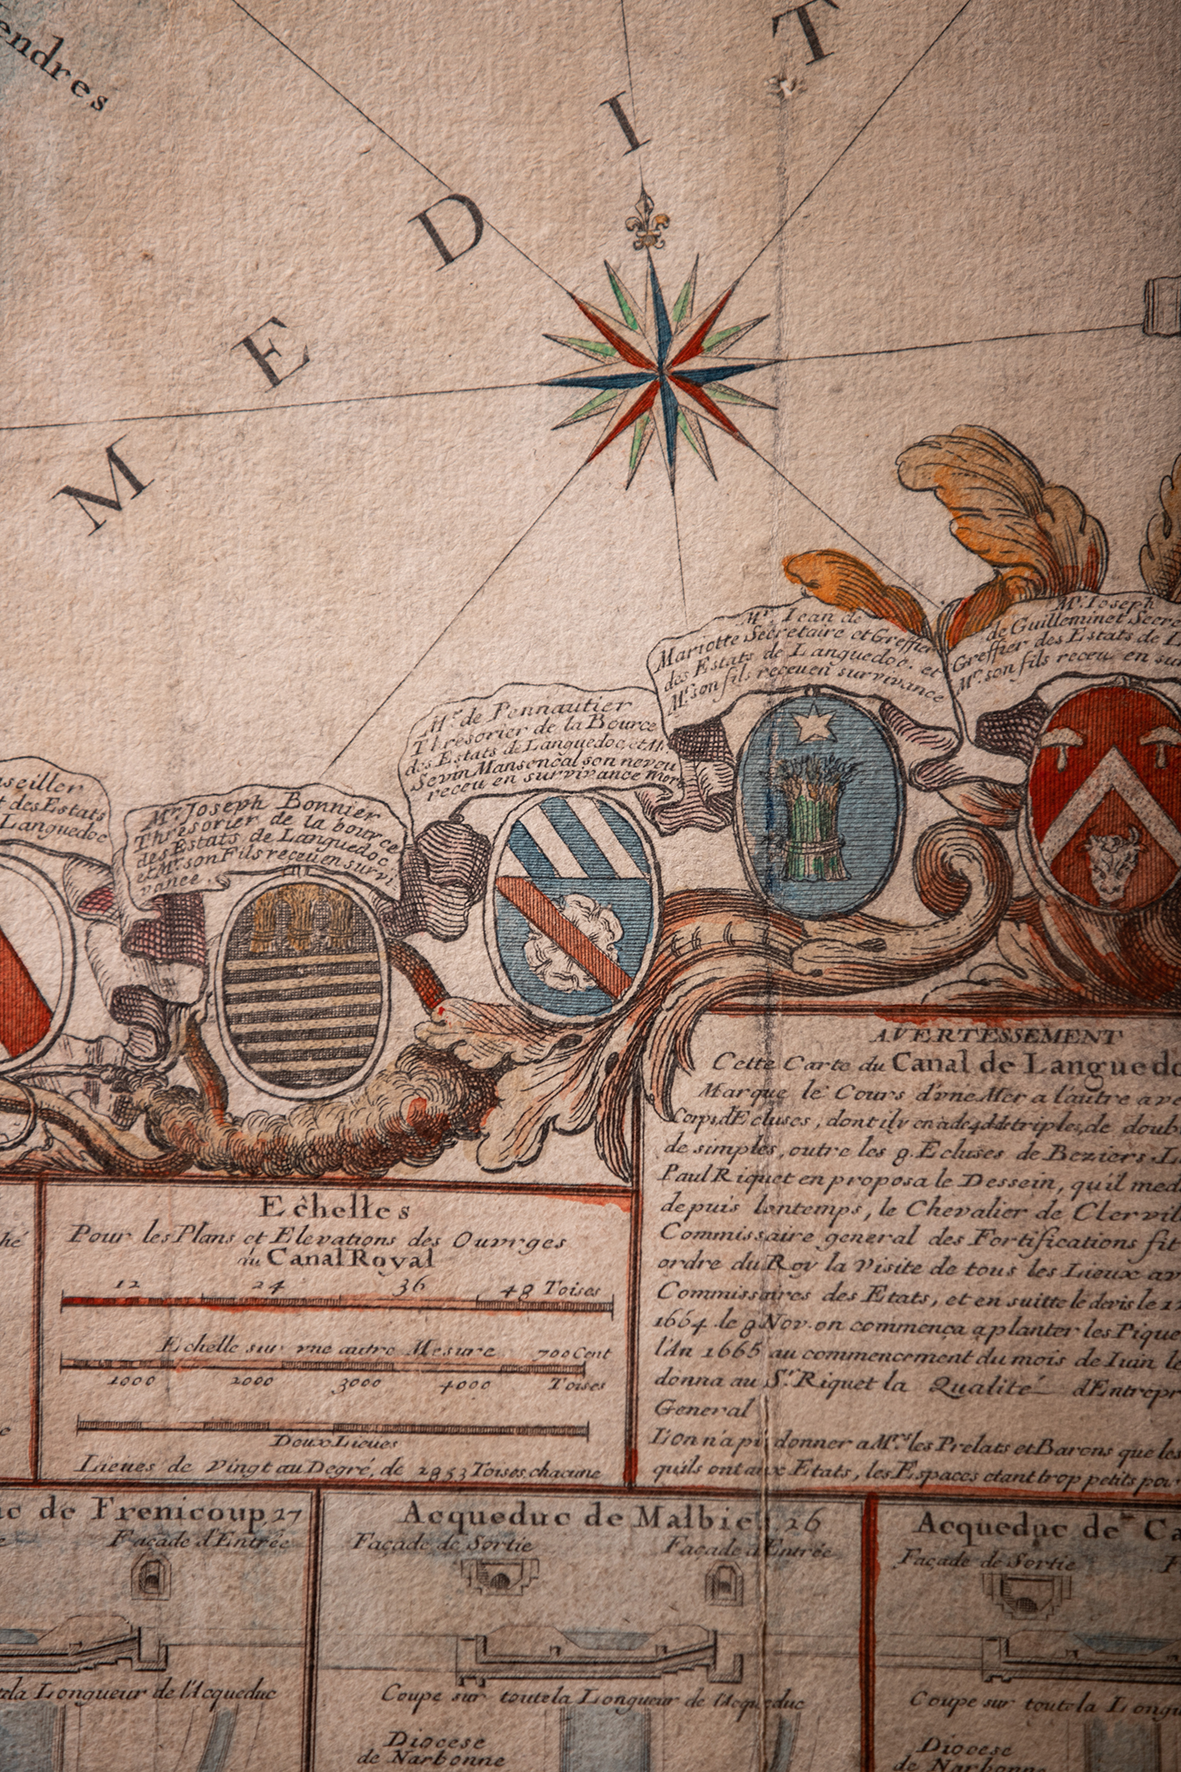 endres
M E D I T
seiller
des Estats
Languedoc
Mr. Joseph Bonnier
Thresorier de la bource
des Estats de Languedoc
et Mr. son Fils receu en survi
vance.
Mr. de Pennautier
Thresorier de la Bource
des Estats de Languedoc, et Mr.
Sevin Mansencal son neveu
receu en survivance
Mr. Iean de
Mariotte Secretaire et Greffier
des Estats de Languedoc. et
Mr. son fils receu en survivance
Mr. Ioseph
de Guilleminet Secre
Greffier des Estats de L
Mr. son fils receu en su
AVERTESSEMENT
Cette Carte du Canal de Languedo
Marque le Cours d'vne Mer a l'autre ave
Corps d'Ecluses, dont il y en a de triples, de doub
de simples, outre les 9 Ecluses de Beziers.
Paul Riquet en proposa le Dessein, qu'il med
depuis lontemps, le Chevalier de Clervil
Commissaire general des Fortifications fit
ordre du Roy la Visite de tous les Lieux av
Commissaires des Etats, et en suitte le devis le
1664 le 9 Nov. on commença a planter les Pique
l'An 1665 au commencement du mois de Iuin le
donna au Sr. Riquet la Qualité d'Entrepr
General
L'on n'a pû donner a Mrs. les Prelats et Barons que les
qu'ils ont aux Etats, les Espaces etant trop petits pou
Echelles
Pour les Plans et Elevations des Ouvrges
du Canal Royal
12 24 36 48 Toises
Echelle sur vne autre Mesure 700 Cent
1000 2000 3000 4000 Toises
Deux Lieues
Lieues de Vingt au Degré, de 2853 Toises chacune
uc de Frenicoup 27
Façade d'Entrée
te la Longueur de l'Acqueduc
Acqueduc de Malbies 26
Façade de Sortie Façade d'Entrée
Coupe sur toute la Longueur de l'Acqueduc
Diocese
de Narbonne
Acqueduc de Ca
Façade de Sortie F
Coupe sur toute la Longu
Diocese
de Narbonne